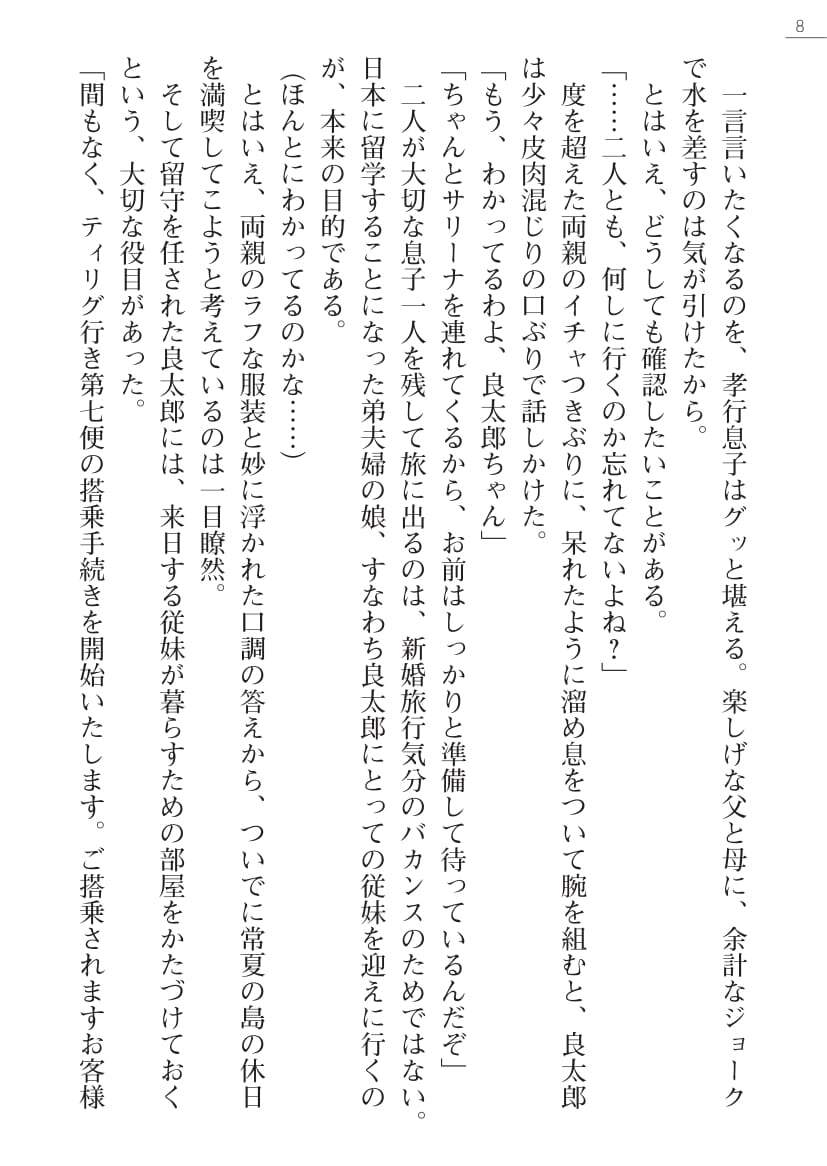 8
　一言言いたくなるのを、孝行息子はグッと堪える。楽しげな父と母に、余計なジョーク
で水を差すのは気が引けたから。
　とはいえ、どうしても確認したいことがある。
「……二人とも、何しに行くのか忘れてないよね？」
　度を超えた両親のイチャつきぶりに、呆れたように溜め息をついて腕を組むと、良太郎
は少々皮肉混じりの口ぶりで話しかけた。
「もう、わかってるわよ、良太郎ちゃん」
「ちゃんとサリーナを連れてくるから、お前はしっかりと準備して待っているんだぞ」
　二人が大切な息子一人を残して旅に出るのは、新婚旅行気分のバカンスのためではない。
日本に留学することになった弟夫婦の娘、すなわち良太郎にとっての従妹を迎えに行くの
が、本来の目的である。
（ほんとにわかってるのかな……）
　とはいえ、両親のラフな服装と妙に浮かれた口調の答えから、ついでに常夏の島の休日
を満喫してこようと考えているのは一目瞭然。
　そして留守を任された良太郎には、来日する従妹が暮らすための部屋をかたづけておく
という、大切な役目があった。
「間もなく、ティリグ行き第七便の搭乗手続きを開始いたします。ご搭乗されますお客様